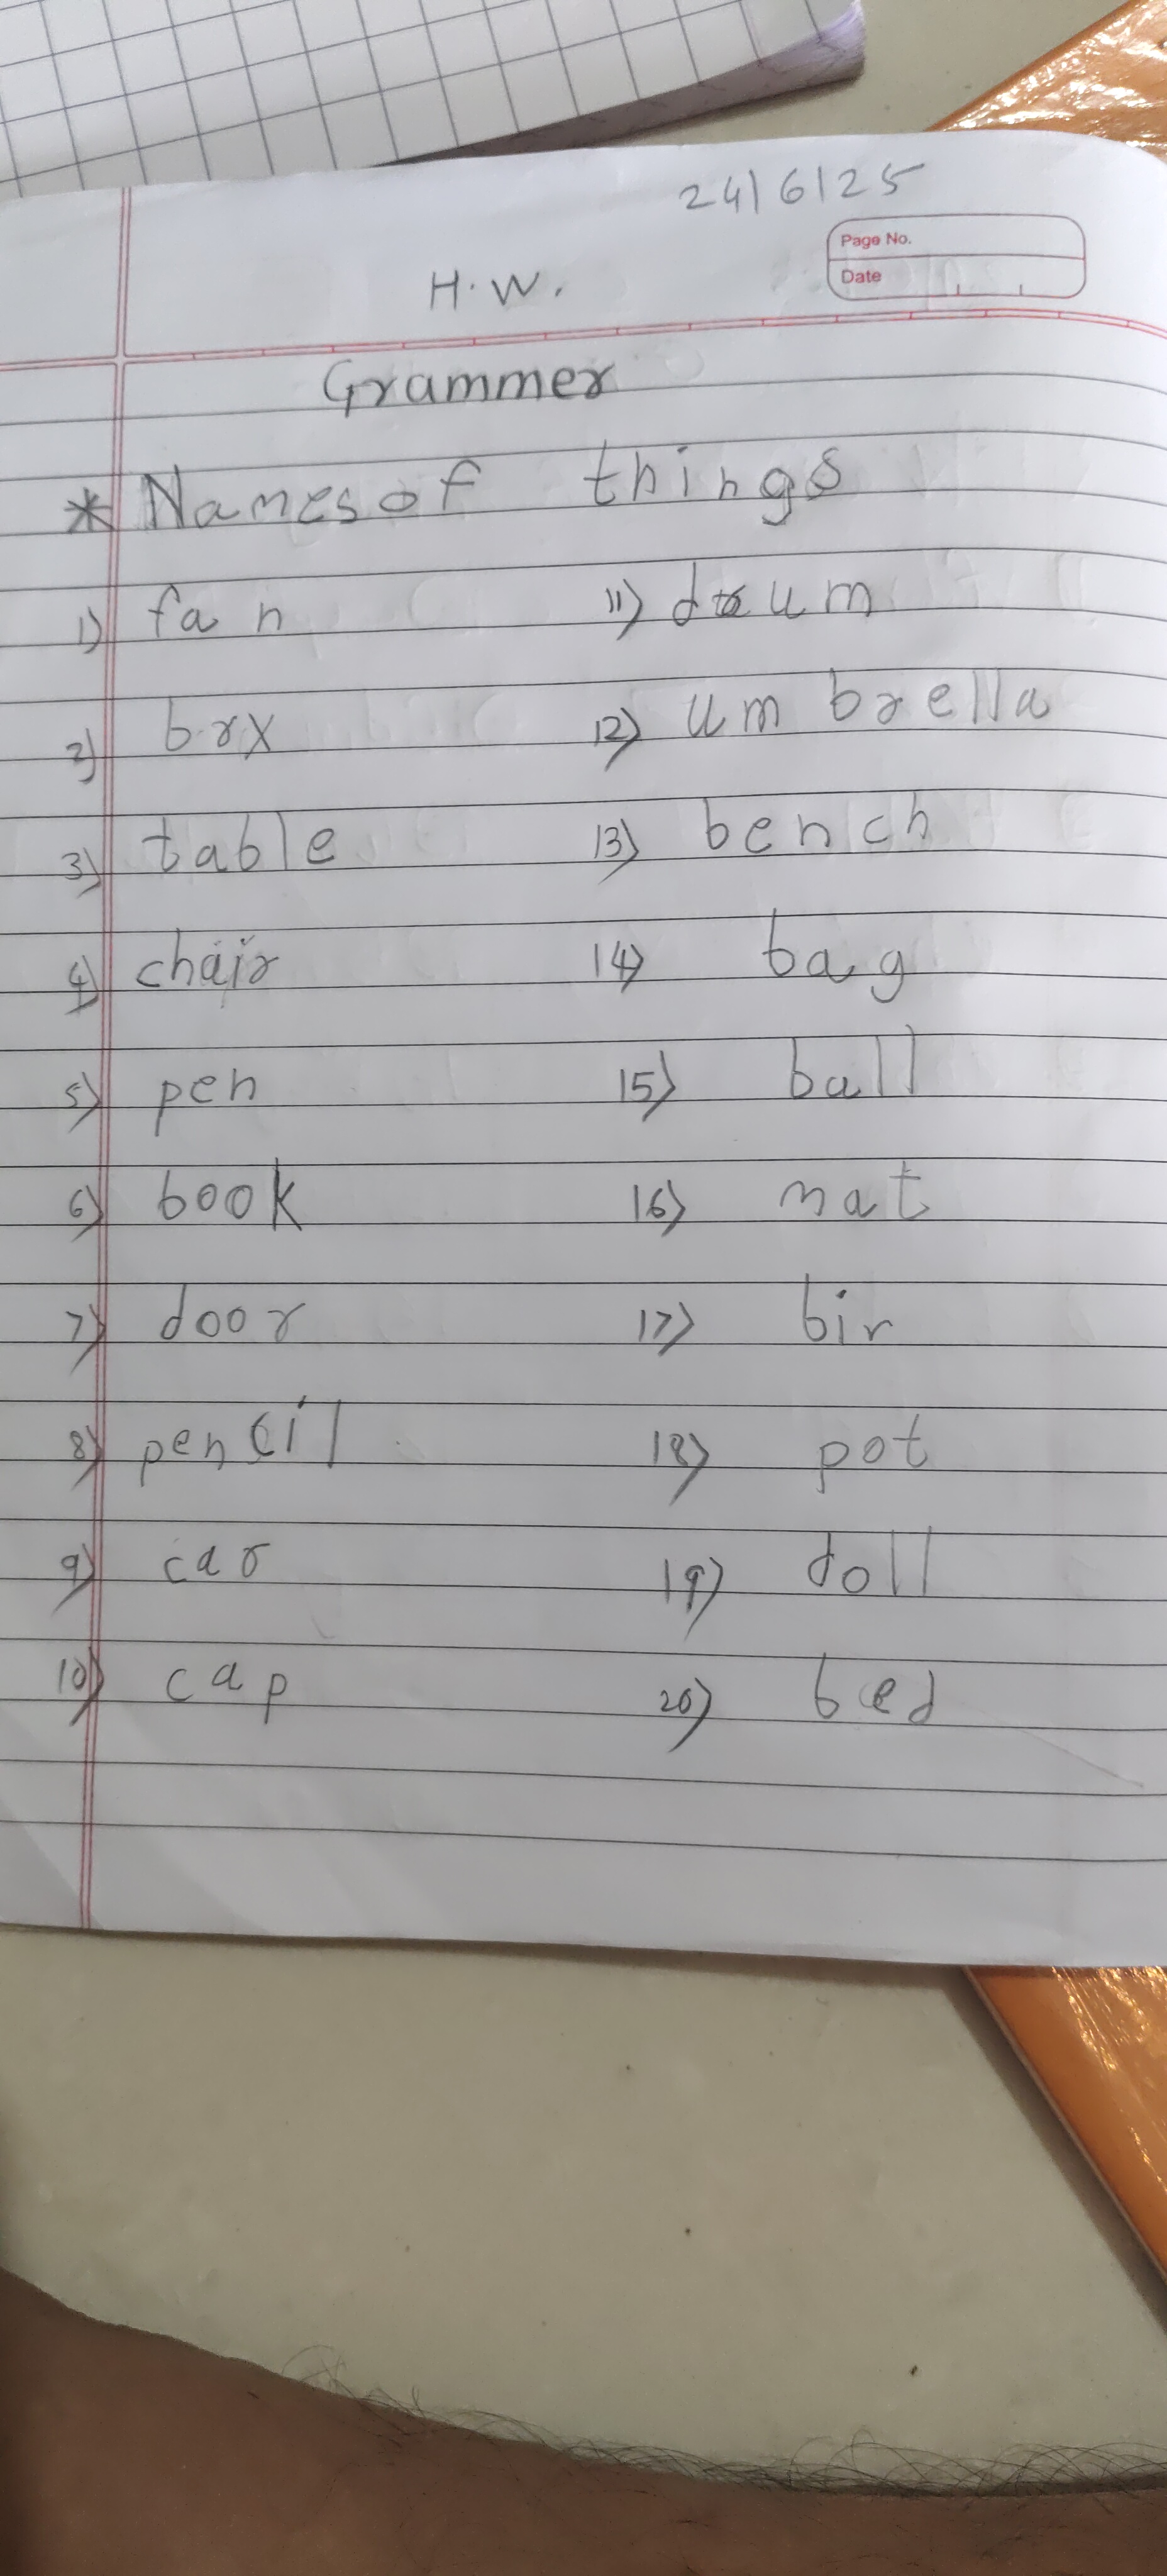 24/6/25
Page No.
Date
H.W.
Grammer
* Names of things
1) fan
2) brx
3) table
4) chair
5) pen
6) book
7) door
8) pencil
9) car
10) cap
11) drum
12) umbrella
13) bench
14) bag
15) ball
16) mat
17) bin
18) pot
19) doll
20) bed